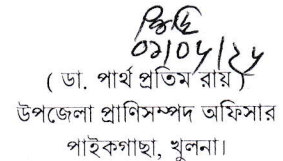 ০১/০৮/২৮
( ডা. পার্থ প্রতিম রায় )
উপজেলা প্রাণিসম্পদ অফিসার
পাইকগাছা, খুলনা।